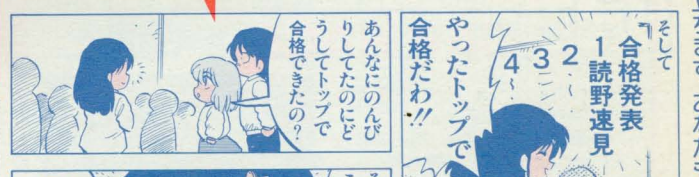 そして
合格発表
1読野速見
2〜
3〜
4〜
やったトップで
合格だわ!!
あんなにのんび
りしてたのにど
うしてトップで
合格できたの?